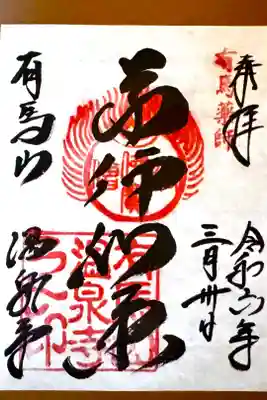 奉拝
有馬薬師
令和六年
三月卅日
薬師如来
有馬山
温泉寺
温泉寺